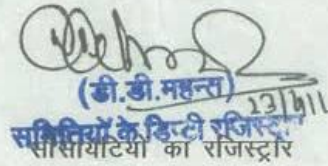 (डी.डी.महन्त)
23/4/11
समितियों के डिप्टी रजिस्ट्रार
सोसायटियों का रजिस्ट्रार